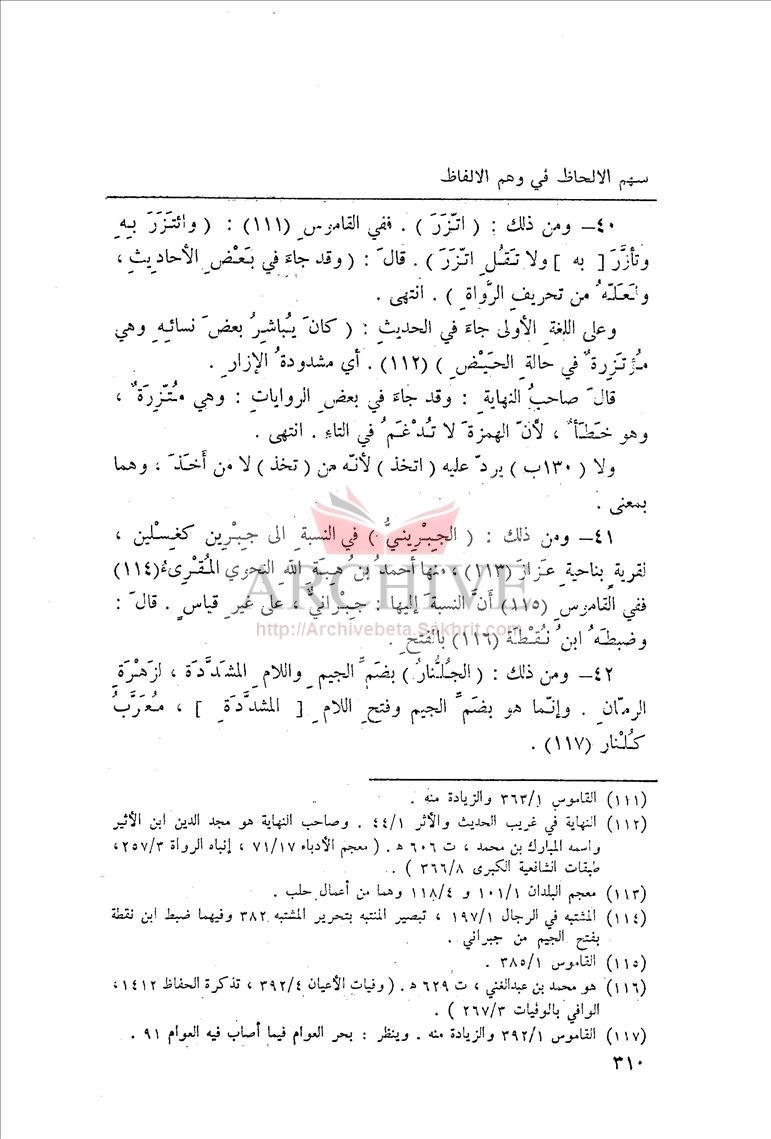 سهم الالحاظ في وهم الالفاظ
٤٠ــ ومن ذلك : ( اتّزَرَ ) . ففي القاموسِ (١١١) : ( وائتَزَرَ بِهِ
وتأزَّرَ [ به ] ولا تَقُلِ اتّزَرَ ) . قالَ : ( وقد جاءَ في بَعْضِ الأحاديثِ ،
ولَعَلّهُ من تحريفِ الرُّواةِ ) . انتهى .
وعلى اللغةِ الأولى جاءَ في الحديثِ : ( كانَ يُباشِرُ بعضَ نسائِهِ وهي
مُؤتَزِرةٌ في حالةِ الحَيْضِ ) (١١٢) . أي مشدودةُ الإزارِ .
قالَ صاحبُ النهايةِ : وقد جاءَ في بعضِ الرواياتِ : وهي مُتّزِرَةٌ ،
وهو خَطَأٌ ، لأنّ الهمزةَ لا تُدْغَمُ في التاءِ . انتهى .
ولا ( ١٣٠ب ) يردّ عليه ( اتخذ ) لأنّه من ( تخذ ) لا من أَخَذَ ، وهما
بمعنى .
٤١ــ ومن ذلك : ( الجِبْرِينيُّ ) في النسبةِ الى جِبْرِين كغِسْلين ،
لقريةٍ بناحيةِ عَزازَ (١١٣) ، منها أحمدُ بنُ هِبَةِ اللّهِ النحوي المُقْرِىءُ (١١٤)
ففي القاموسِ (١١٥) أنَّ النسبةَ إليها : جِبْرانيٌّ ، على غيرِ قياسٍ . قالَ :
وضبطَهُ ابنُ نُقْطَةَ (١١٦) بالفتحِ .
ARCHIVE
http://Archivebeta.Sakhrit.com
٤٢ــ ومن ذلك : ( الجُلُّنارُ ) بضَمِّ الجيمِ واللامِ المشدَّدَةِ ، لزَهْرَةِ
الرمّانِ . وإنّما هو بضَمِّ الجيمِ وفتحِ اللامِ [ المشدَّدةِ ] ، مُعَرَّبُ
كُلْنار (١١٧) .
(١١١) القاموس ٣٦٣/١ والزيادة منه .
(١١٢) النهاية في غريب الحديث والأثر ٤٤/١ . وصاحب النهاية هو مجد الدين ابن الأثير
واسمه المبارك بن محمد ، ت ٦٠٦ هـ . ( معجم الأدباء ٧١/١٧ ، إنباه الرواة ٢٥٧/٣،
طبقات الشافعية الكبرى ٣٦٦/٨ ) .
(١١٣) معجم البلدان ١٠١/١ و ١١٨/٤ وهما من أعمال حلب .
(١١٤) المشتبه في الرجال ١٩٧/١ ، تبصير المنتبه بتحرير المشتبه ٣٨٢ وفيهما ضبط ابن نقطة
بفتح الجيم من جبراني .
(١١٥) القاموس ٣٨٥/١ .
(١١٦) هو محمد بن عبدالغني ، ت ٦٢٩ هـ . ( وفيات الأعيان ٣٩٢/٤ ، تذكرة الحفاظ ١٤١٢،
الوافي بالوفيات ٢٦٧/٣ ) .
(١١٧) القاموس ٣٩٢/١ والزيادة منه . وينظر : بحر العوام فيما أصاب فيه العوام ٩١ .
٣١٠